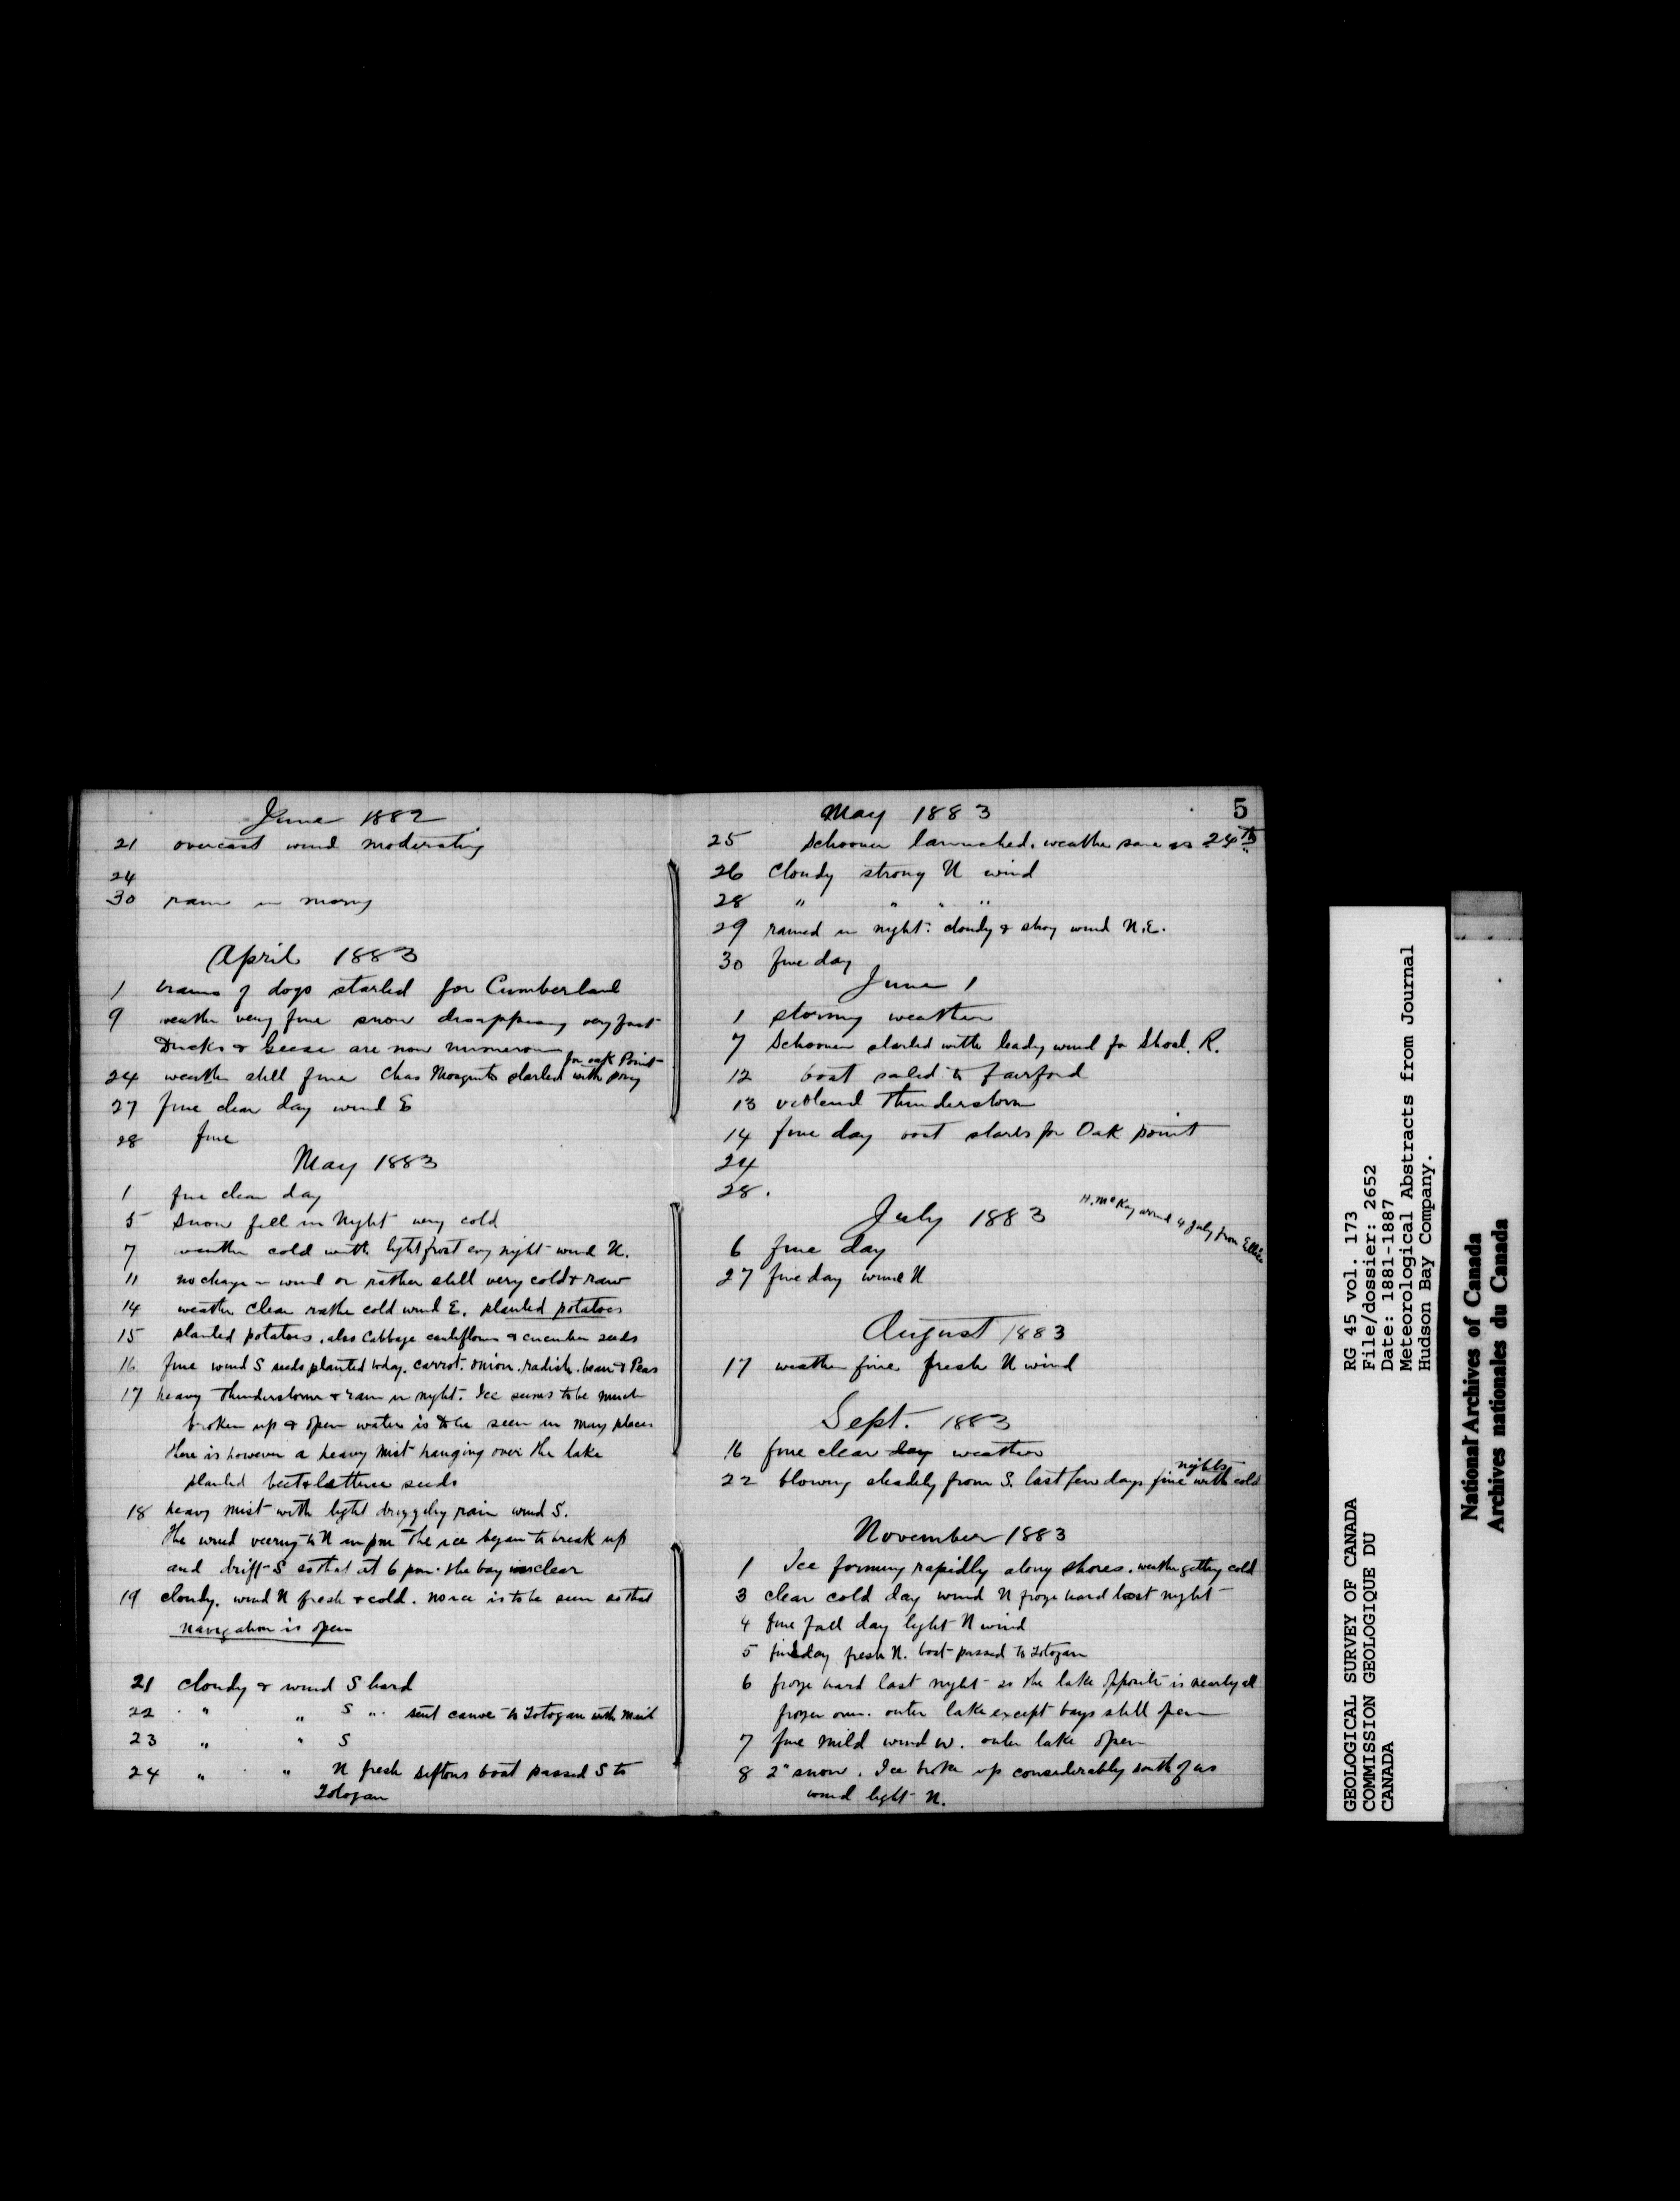 June 1882
21 overcast wind moderating
24
30 rain in morng
April 1883
1 trains of dogs started for Cumberland
9 weather very fine snow disappearing very fast
Ducks & Geese are now numerous
for oak Point
24 weather still fine Chas started with pony
27 fine clear day wind E
28 fine
May 1883
1 fine clear day
5 Snow fell in night very cold
7 weather cold with light frost evry night wind N.
11 no change in wind or rather still very cold & raw
14 weather clear rather cold wind E. planted potatoes
15 planted potatoes, also Cabbage cauliflower & cucumber seeds
16 fine wind S seeds planted today. carrot. onion. radish. bean & Peas
17 heavy thunderstorm & rain in night. Ice seems to be much
broken up & open water is to be seen in many places
there is however a heavy mist hanging over the lake
planted beet & lettuce seeds
18 heavy mist with light drizzling rain wind S.
The wind veering to N in pm The ice began to break up
and drift S so that at 6 pm. the bay is clear
19 cloudy. wind N fresh & cold. no ice is to be seen so that
navigation is open
21 cloudy & wind S hard
22 " " S " sent canoe to Totogan with mail
23 " " S
24 " " N fresh Siftons boat passed S to
Totogan
May 1883
5
25 Schooner launched, weather same as 24th
26 Cloudy strong N wind
28 " " " "
29 rained in night. cloudy & strong wind N.E.
30 fine day
June 1
1 stormy weather
7 Schooner started with leading wind for Shoal. R.
12 boat sailed to Fairford
13 violent thunderstorm
14 fine day boat starts for Oak point
24
28.
July 1883
H. McKay arrived 4 July from Ellice
6 fine day
27 fine day wind N
August 1883
17 weather fine fresh N wind
Sept. 1883
16 fine clear day weather
nights
22 blowing steadily from S. last few days fine with cold
November 1883
1 Ice forming rapidly along shores. weather getting cold
3 clear cold day wind N froze hard last night
4 fine fall day light N wind
5 fine day fresh N. boat passed to Totogan
6 froze hard last night so the lake opposite is nearly all
frozen over. outer lake except bays still open
7 fine mild wind W. outer lake open
8 2" snow. Ice broke up considerably south of us
wind light N.
RG 45 vol. 173
File/dossier: 2652
Date: 1881-1887
Meteorological Abstracts from Journal
Hudson Bay Company.
GEOLOGICAL SURVEY OF CANADA
COMMISSION GEOLOGIQUE DU
CANADA
National Archives of Canada
Archives nationales du Canada